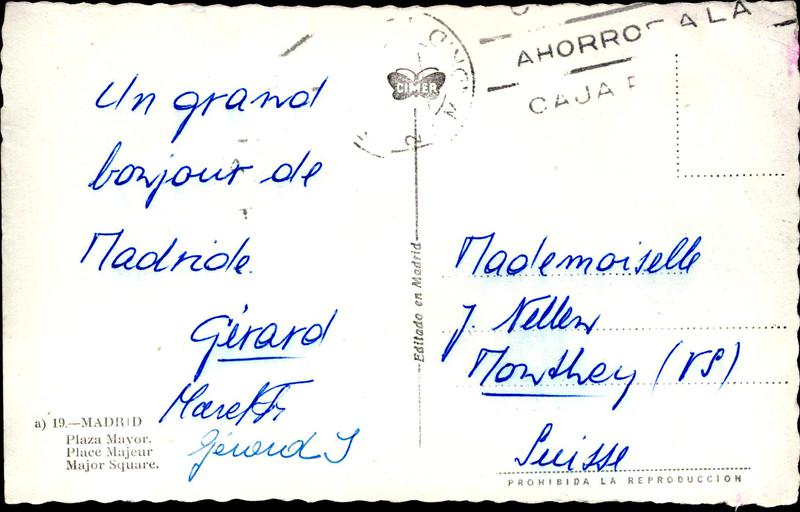 Un grand
bonjour de
Madride.
Gérard
Gérard J
a) 19.—MADRID
Plaza Mayor.
Place Majeur
Major Square.
CIMER
Editado en Madrid
AHORRO A LA
CAJA
Mademoiselle
J. Nellen
Monthey (VS)
Suisse
PROHIBIDA LA REPRODUCCION